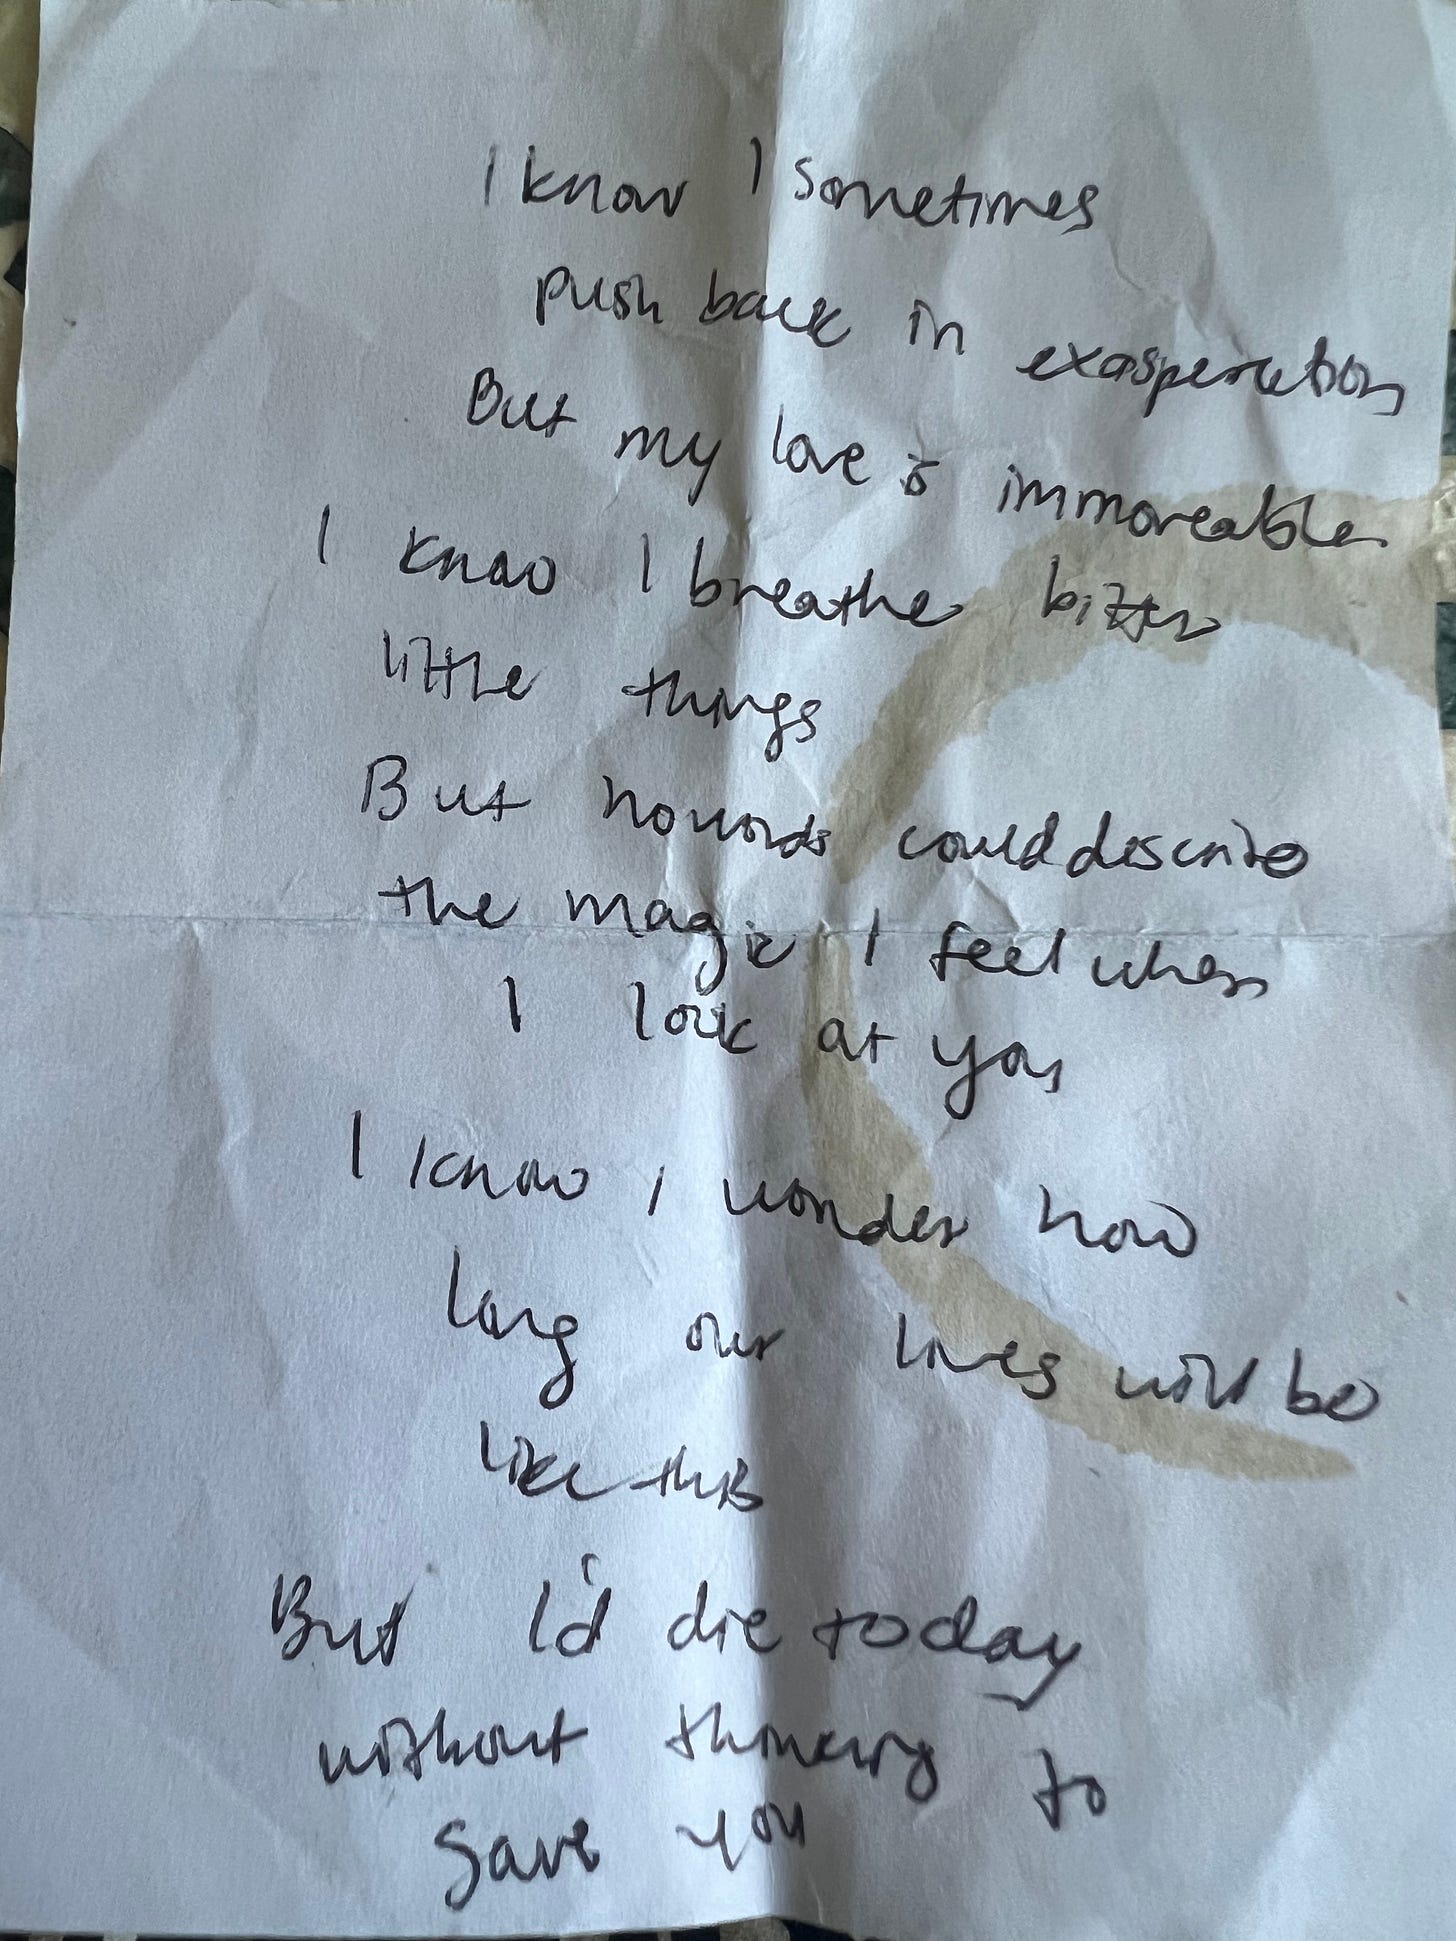 I know I sometimes
push back in exasperation
But my love is immoveable
I know I breathe bitter
little things
But no words could describe
the magic I feel when
I look at you
I know I wonder how
long our lives will be
like this
But I'd die today
without thinking to
save you